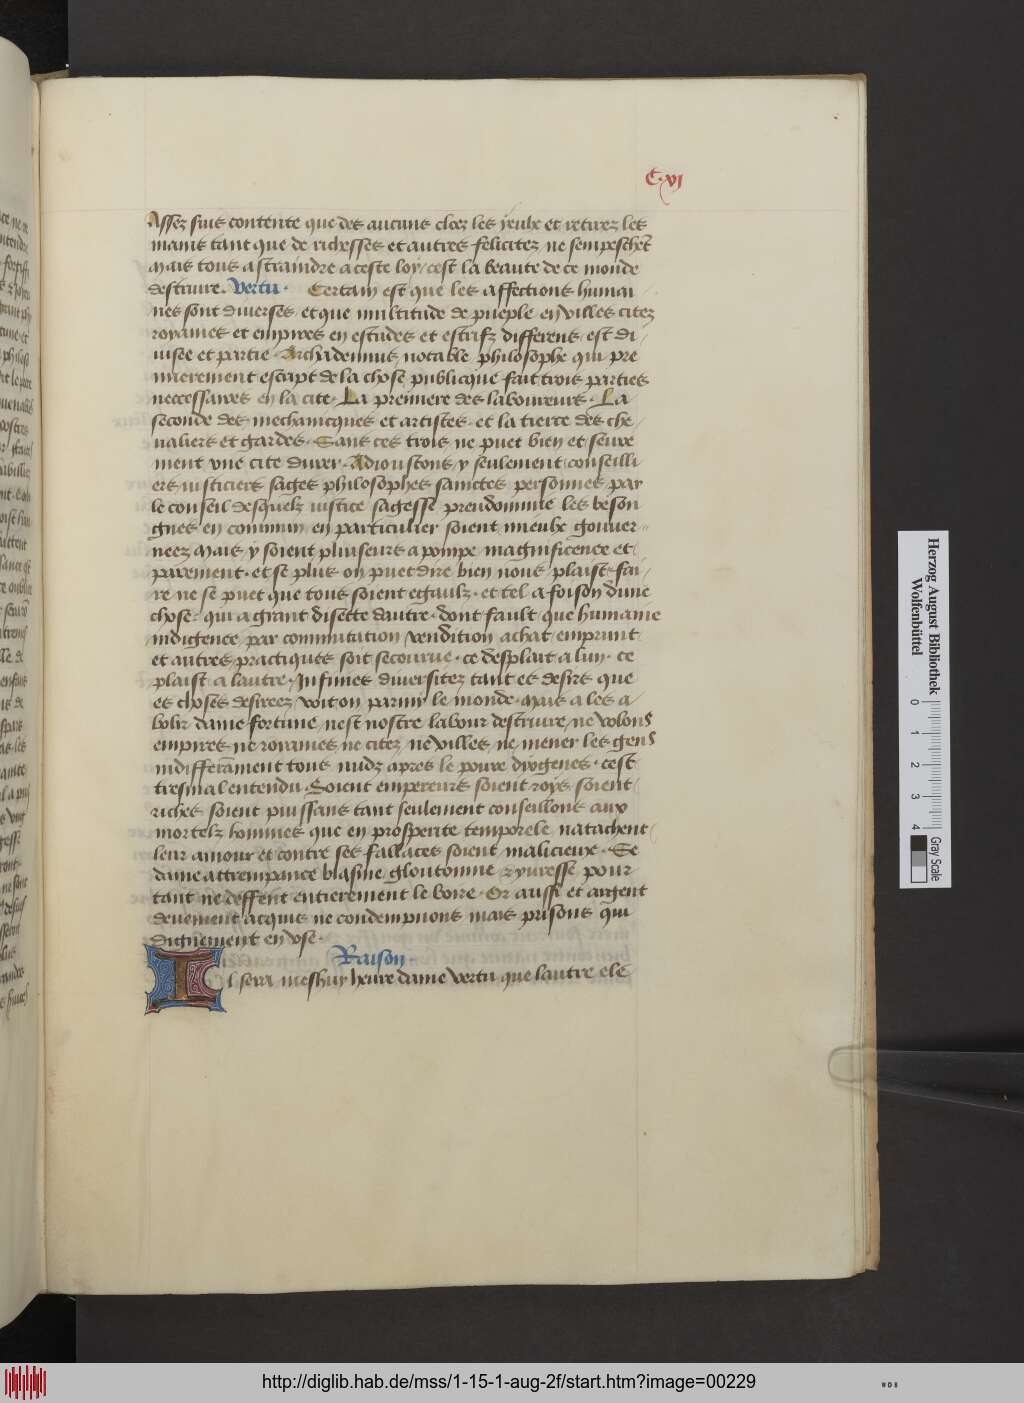 C.vi
Assez suis contente que des aucuns cloez les yeulx et retirez les
mains tant que de richesses et autres felicitez ne sempeschet
Mais tous astraindre a ceste loy / cest la beaute de ce monde
destruire. Vertu. Certain est que les affections humai
nes sont diuerses, et que multitude de pueple en villes citez
royaumes et empires en estudes et estatz differens, est di /
uisee et partie. Archademius notable philosophe qui pre
mierement escript de la chose publicque fait trois parties
necessaires en la cite. La premiere des laboureurs. La
seconde des mechanicques et artistes. et la tierce des che /
ualiers et gardes. Sans ces trois ne puet bien et seure
ment vne cite durer. Adioustons y seulement conseilli
ers iusticiers sages philosophes sainctes personnes par
le conseil desquelz iustice sagesse preudommie les beson
gnes en commun en particulier soient mieulx gouuer-
neez Mais y soient pluiseurs a pompe magnificence et
parement. et se plus on puet dire bien nous plaist. fai /
re ne se puet que tous soient egaulz. et tel a foison dune
chose. qui a grant disette dautre. dont fault que humaine
indigence par commutation vendition achat emprunt
et autres practiques soit secourue. ce desplait a lun. ce
plaist a lautre. Infinies diuersitez tant es desirs que
es choses desireez voit on parmy le monde. Mais a les a /
bolir dame fortune nest nostre labour destruire, ne volons
empires ne royaumes ne citez ne villes, ne mener les gens
indifferamment tous nudz apres le poure dyogenes. cest
tresmal entendu. Soient empereurs soient roys soient
riches soient puissans tant seulement conseillons aux
mortelz hommes que en prosperite temporele natachent
leur amour et contre ses fallaces soient malicieux. Se
dame attrempance blasme gloutonnie & yuresse pour
tant ne deffent entierement le boire. Or aussi et argent
deuement acquis ne condempnons mais prisons qui
dignement en vse.
Raison.
Il sera meshuy heure dame vertu que lautre ele
Herzog August Bibliothek
Wolfenbüttel
0 1 2 3 4
Gray Scale
http://diglib.hab.de/mss/1-15-1-aug-2f/start.htm?image=00229